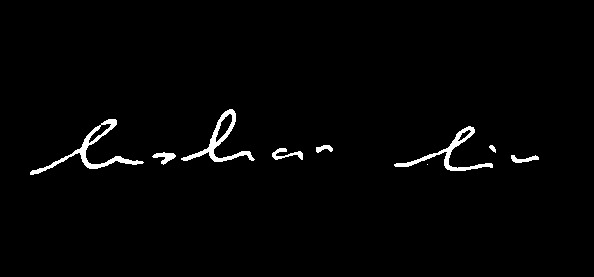 lushan liu